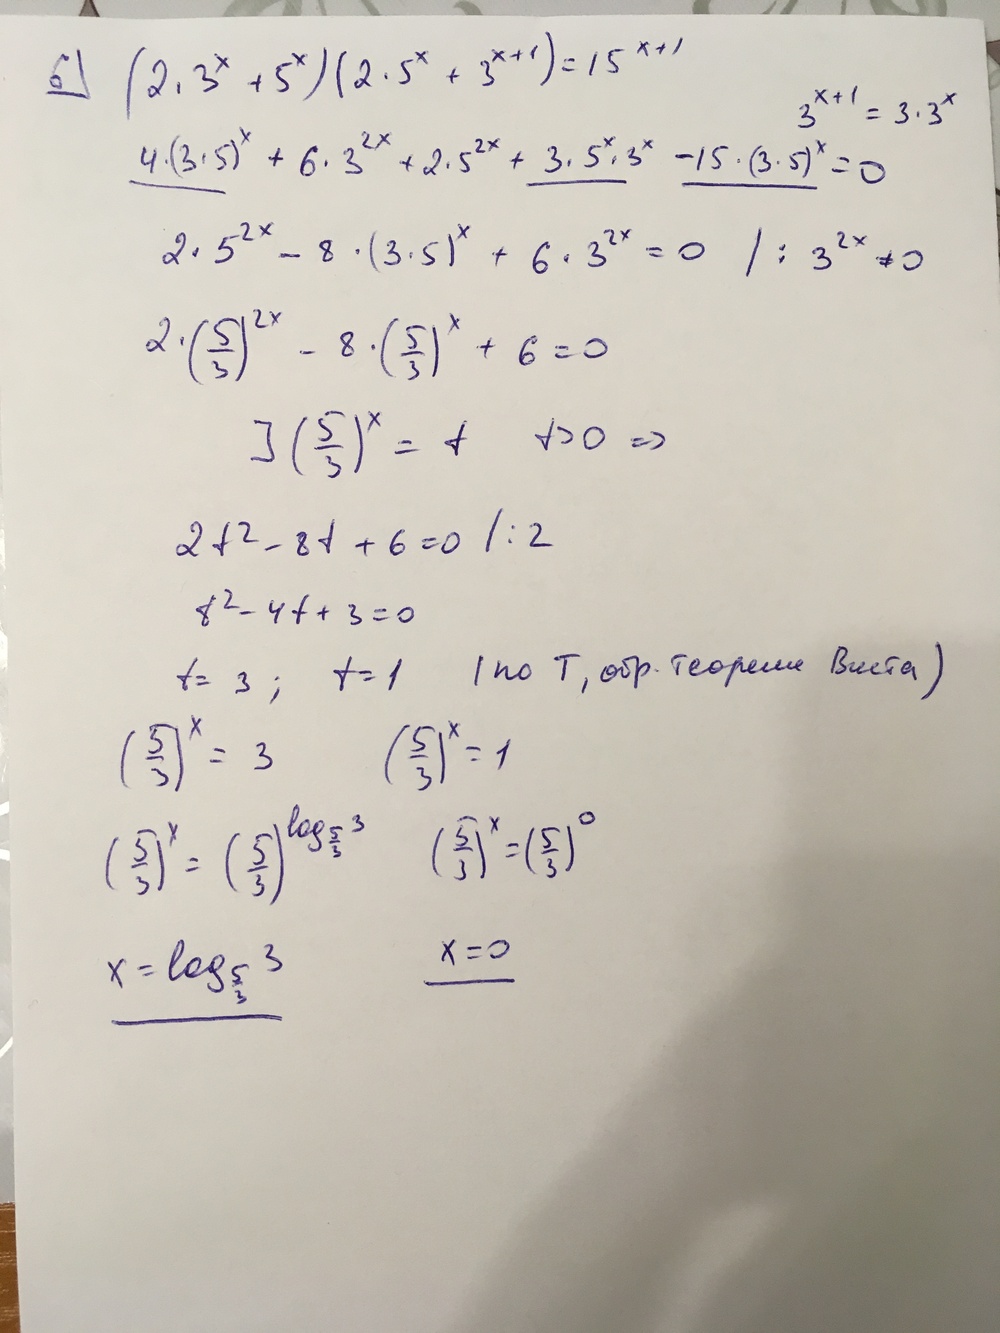 б) (2·3^x + 5^x)(2·5^x + 3^{x+1}) = 15^{x+1}
3^{x+1} = 3·3^x
4·(3·5)^x + 6·3^{2x} + 2·5^{2x} + 3·5^x·3^x - 15·(3·5)^x = 0
2·5^{2x} - 8·(3·5)^x + 6·3^{2x} = 0 /: 3^{2x} ≠ 0
2·(5/3)^{2x} - 8·(5/3)^x + 6 = 0
] (5/3)^x = t t>0 =>
2t² - 8t + 6 = 0 /:2
t² - 4t + 3 = 0
t = 3; t = 1 (по Т, обр. теореме Виета)
(5/3)^x = 3 (5/3)^x = 1
(5/3)^x = (5/3)^{log_{5/3} 3} (5/3)^x = (5/3)^0
x = log_{5/3} 3 x = 0